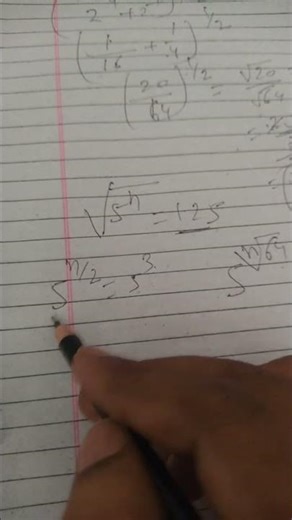 (1/16 + 1/4)^1/2
(20/64)^1/2 = √20/√64
√5^n = 125
5^n/2 = 5^3 5^n√64